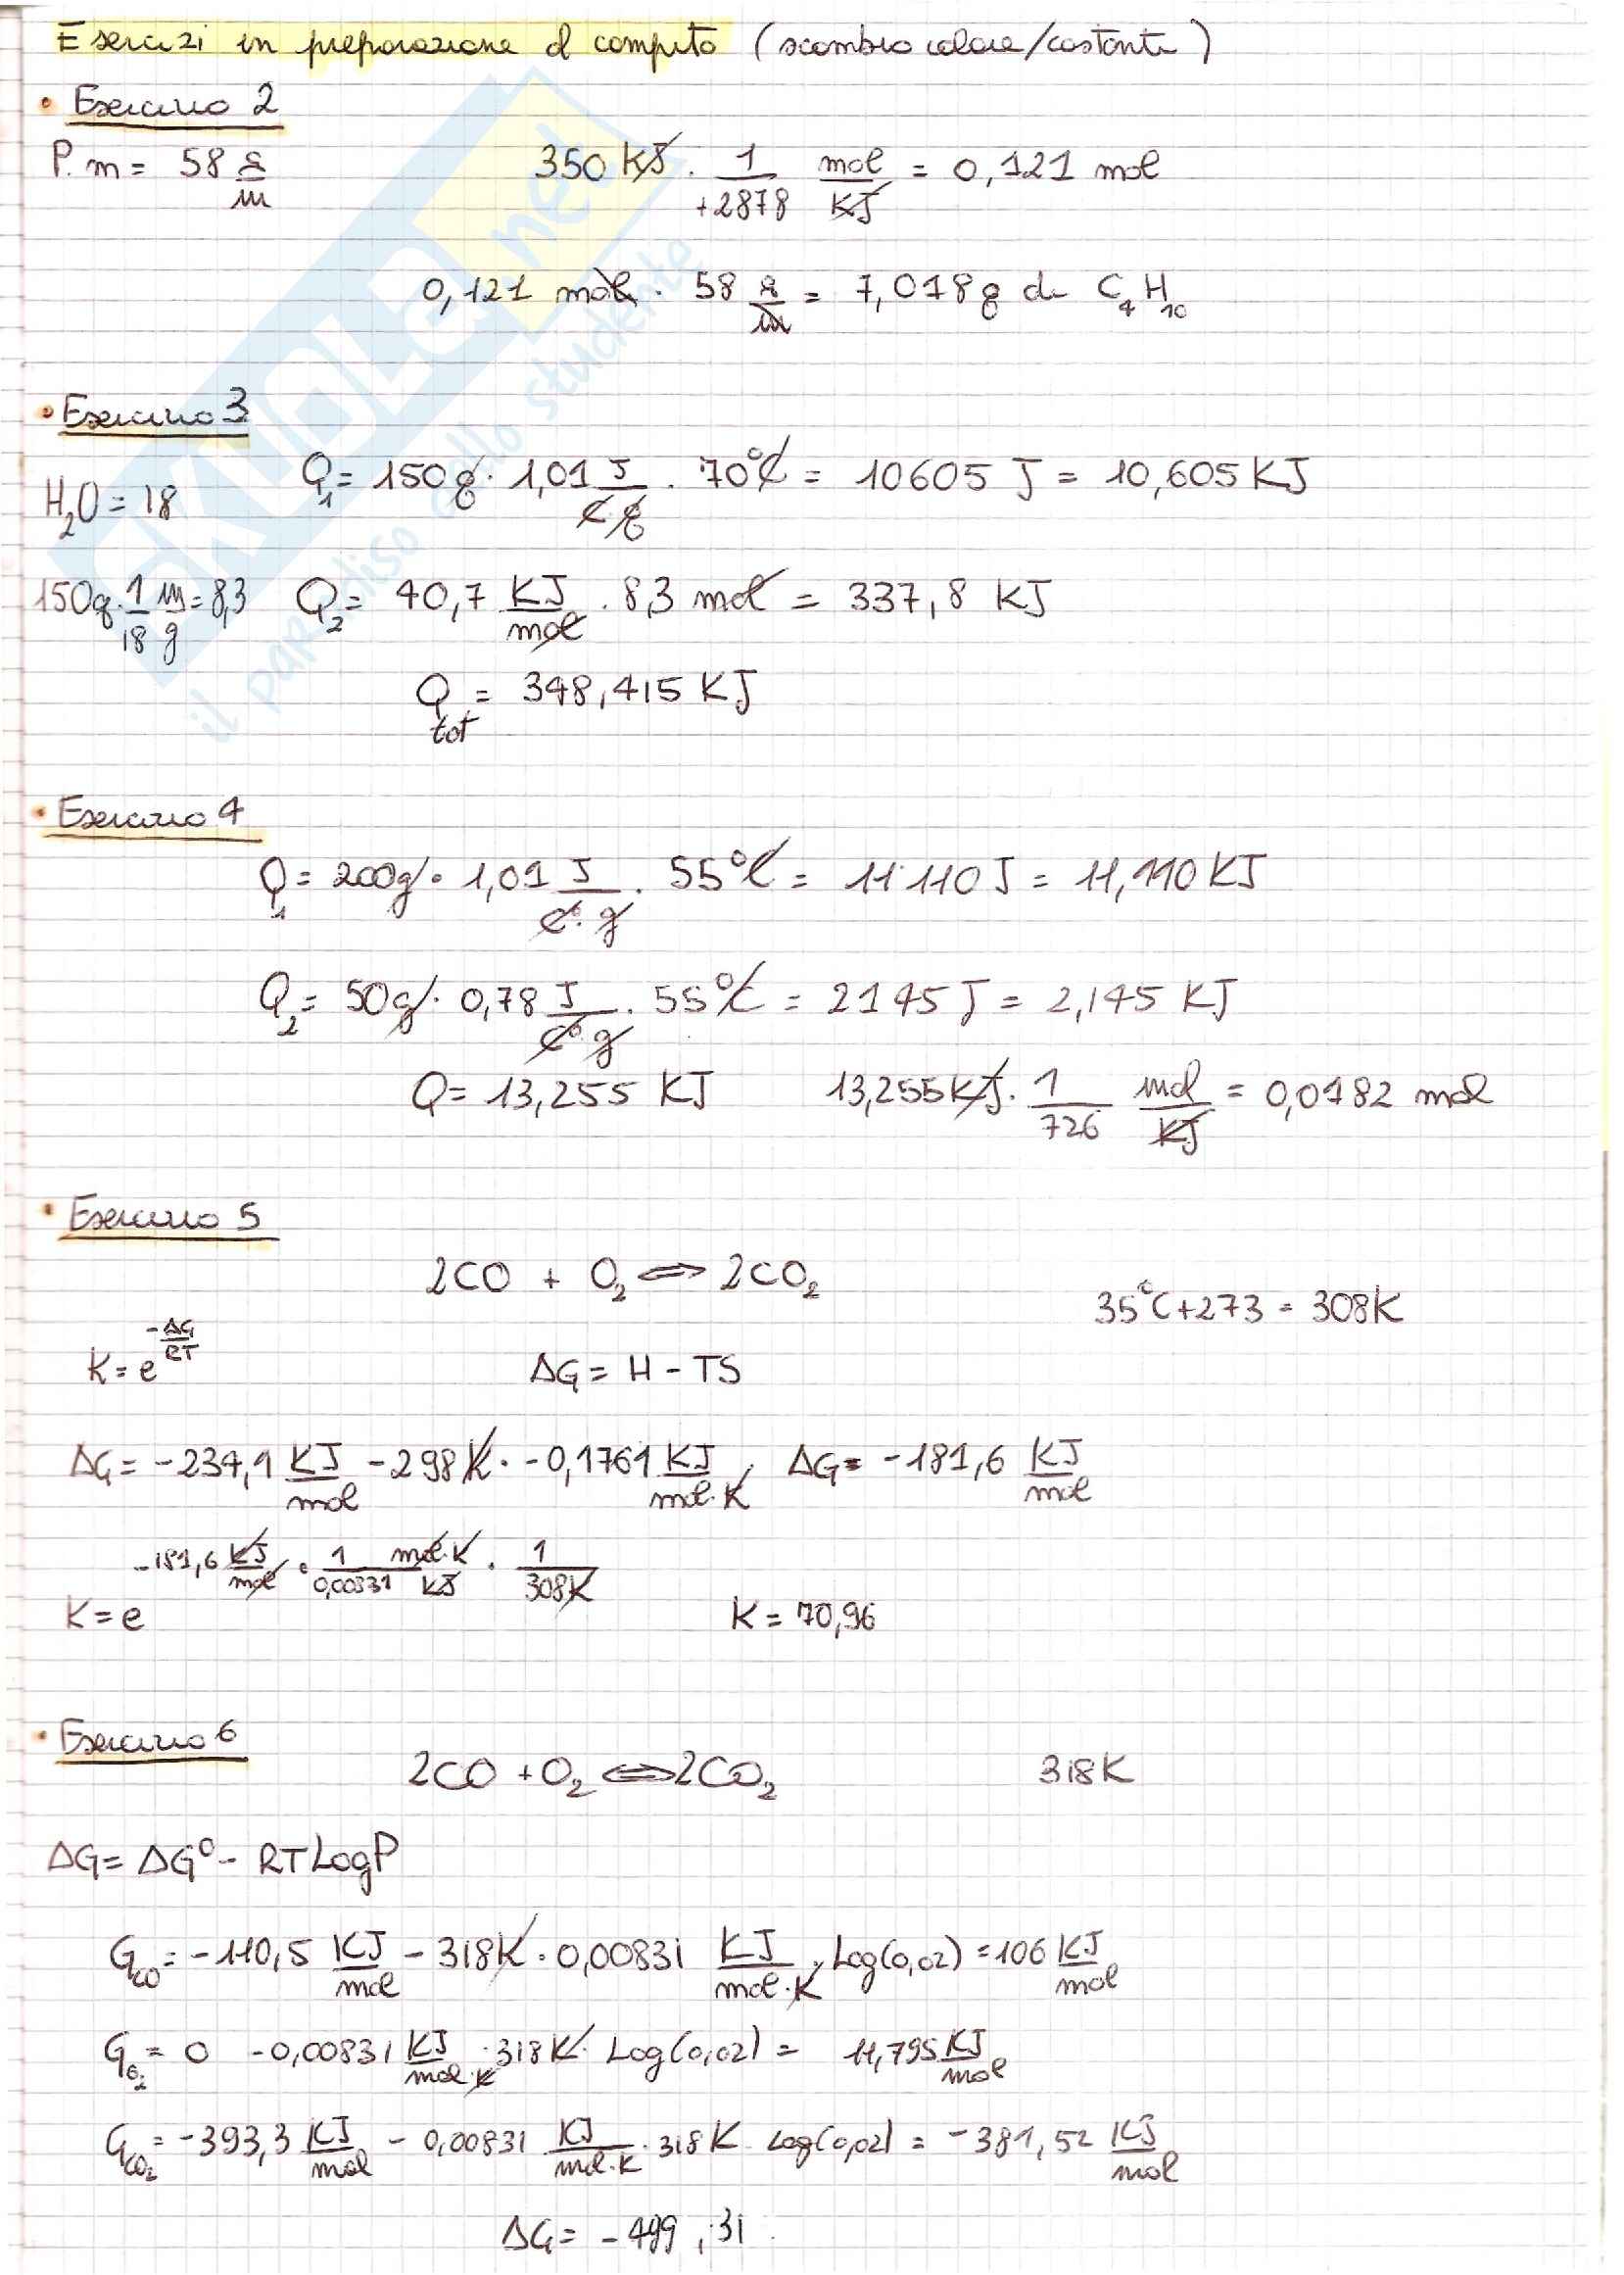 Esercizi in preparazione al compito (scambio calore/costante)
• Esercizio 2
P.m = 58 g/m 350 KJ · 1/+2878 mol/KJ = 0,121 mol
0,121 mol · 58 g/m = 7,018 g di C4H10
• Esercizio 3
H2O = 18 Q1 = 150 g · 1,01 J/C g · 70°C = 10605 J = 10,605 KJ
150g · 1/18 m/g = 8,3 Q2 = 40,7 KJ/mol · 8,3 mol = 337,8 KJ
Qtot = 348,415 KJ
• Esercizio 4
Q1 = 200g · 1,01 J/C°·g · 55°C = 11110 J = 11,110 KJ
Q2 = 50g · 0,78 J/C°·g · 55°C = 2145 J = 2,145 KJ
Q = 13,255 KJ 13,255 KJ · 1/726 mol/KJ = 0,0182 mol
• Esercizio 5
2CO + O2 ⇌ 2CO2 35°C+273 = 308K
K = e^-ΔG/RT ΔG = H - TS
ΔG = -234,1 KJ/mol - 298K · -0,1761 KJ/mol·K ΔG = -181,6 KJ/mol
K = e^-181,6 KJ/mol · 1/0,00831 mol·K/KJ · 1/308K K = 70,96
• Esercizio 6
2CO + O2 ⇌ 2CO2 318K
ΔG = ΔG° - RT Log P
GCO = -110,5 KJ/mol - 318K · 0,00831 KJ/mol·K · Log(0,02) = 106 KJ/mol
GO2 = 0 - 0,00831 KJ/mol·K · 318K · Log(0,02) = 11,795 KJ/mol
GCO2 = -393,3 KJ/mol - 0,00831 KJ/mol·K · 318K Log(0,02) = -381,52 KJ/mol
ΔG = -499,31
SKUOLA.net
il paradiso dello studente